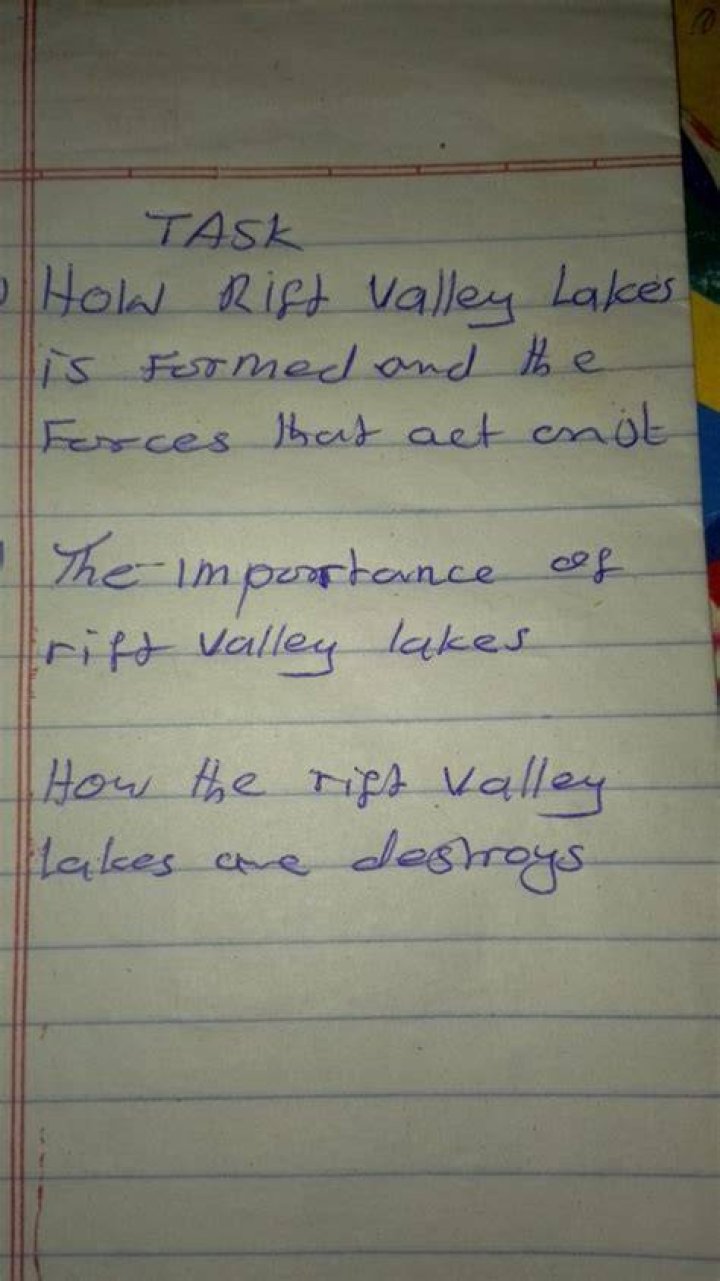 TASK
How Rift Valley Lakes
is Formed and the
Forces that act on it
The importance of
rift valley lakes
How the rift valley
lakes are destroys